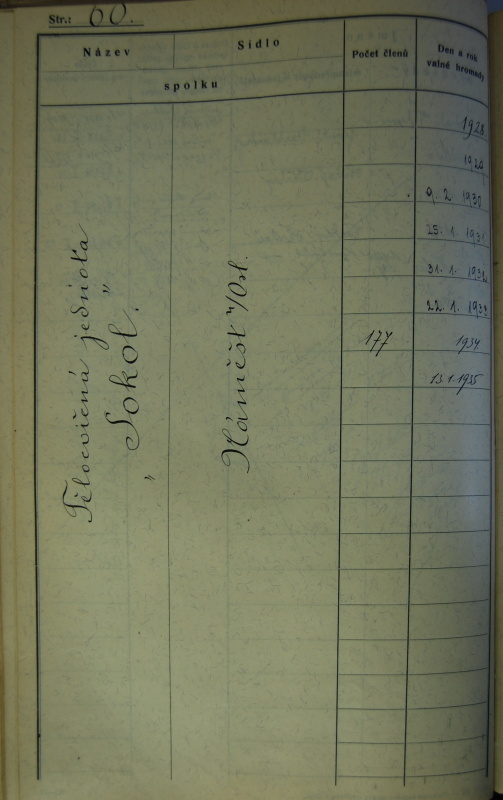 Str.: 60.
Název
Sídlo
spolku
Počet členů
Den a rok
valné hromady
Tělocvičná jednota
„Sokol”
Náměšť n/Osl.
1928.
1929
9. 2. 1930
25. 1. 1931
31. 1. 1932
22. 1. 1933
177 1934
13.1.1935